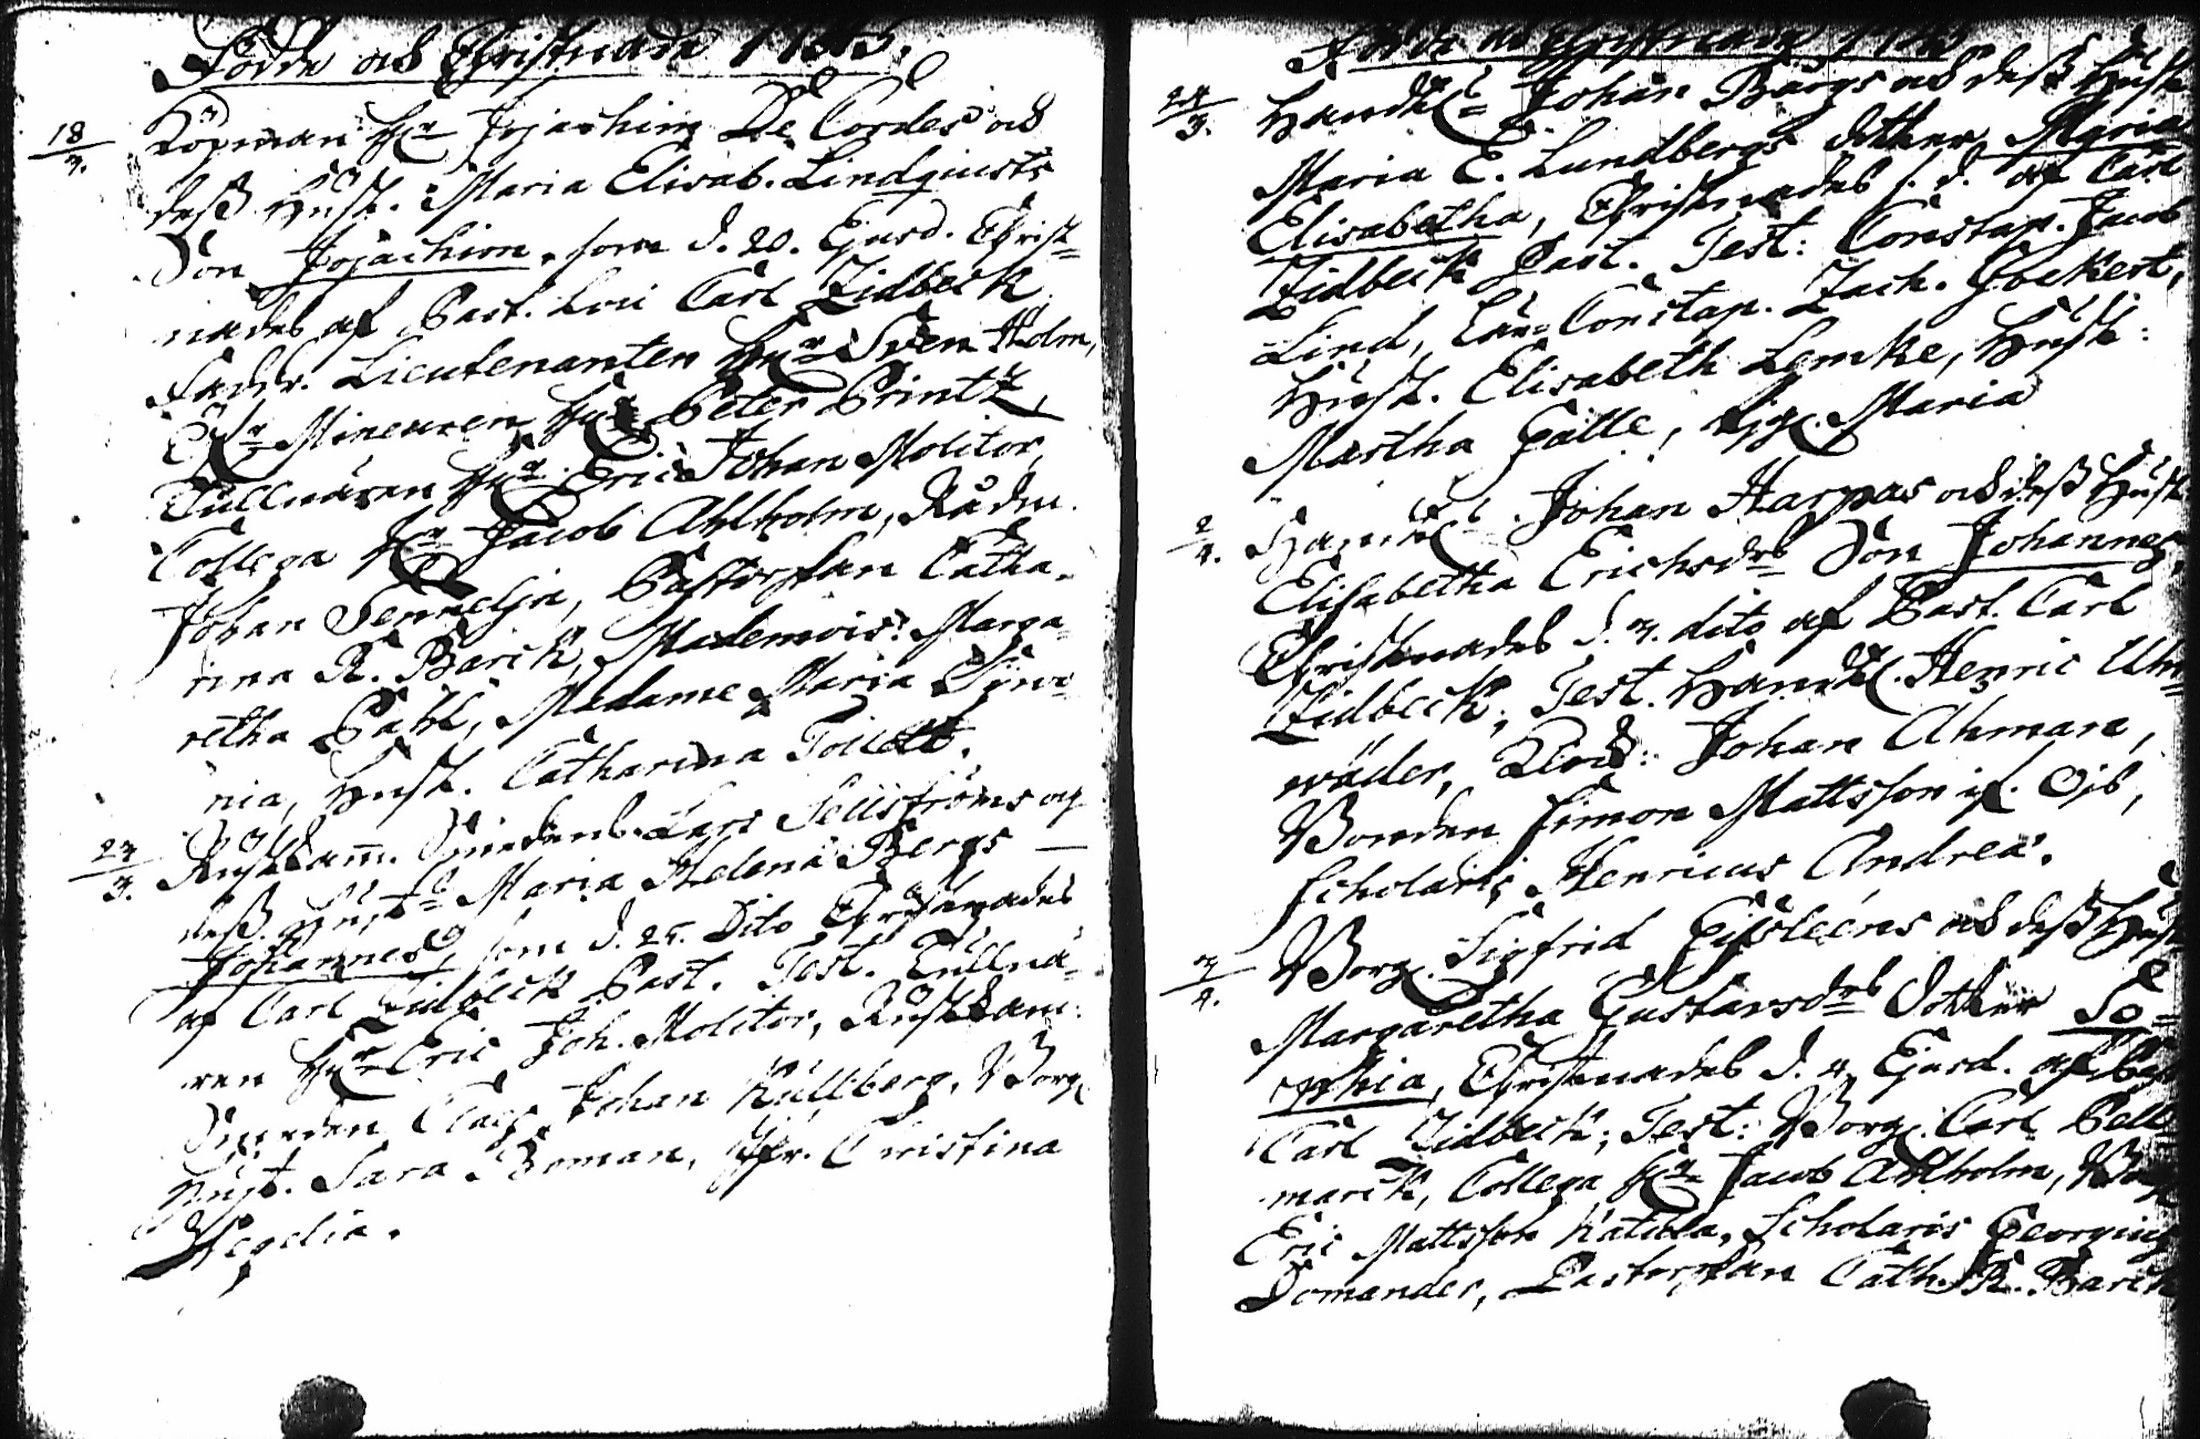 Födde och Christnade
18/3. Köpman Hr Jojachim De Cordes och
dess Hust. Maria Elisab. Lindqvists
Son Jojachim, som d. 20. Ejusd. Christ=
nades af Past. Loci Carl Lidbeck
Faddr. Lieutenanten Hr Sven Holm,
Mineuren Hr Peter Printz,
Tullnären Hr Eric Johan Molitor,
Collega Hr Jacob Ahlholm, Rådm.
Johan, Pastorskan Catha=
rina R. Barck, Mademois: Marga=
retha Pahl, Madame Maria
nia, Hust. Catharina
23/3. Rustkam. Smeden Lars Sellströms och
dess Hust. Maria Helena Bergs
Johannes, som d. 25. Dito Christnades
af Carl Lidbeck Past. Test. Tullnä=
ren Hr Eric Joh. Molitor, Rustkam:
Smeden Claes Johan Kullberg, Borg.
Hust. Sara Boman, Jfr. Christina
Hegelia.
Födde och Christnade
24/3. Handtl. Johan Bargs och dess Hust.
Maria E. Lundbergs dotter Maria
Elisabetha, Christnades s. d. af Carl
Lidbeck Past. Test: Constap. Jacob
Lind, Constap. Zach. Gockert,
Hust. Elisabeth Lemke, Hust:
Martha Fälle, Pig. Maria
2/4. Handtl. Johan Harpas och dess Hust.
Elisabetha Erichsdr Son Johannes,
Christnades d. 3. dito af Past. Carl
Lidbeck, Test. Handtl. Henric Uhr=
wäder, Johan Ahman,
Bonden Simon Mattsson
Scholaris Henricus Andreä.
3/4. Borg. Sigfrid och dess Hust
Margaretha Gustavsdr Dotter So=
phia, Christnades d. 4. Ejusd. af Past
Carl Lidbeck, Test: Borg. Carl Pell=
marck, Collega Hr Jacob Ahlholm, Borg
Eric Mattsson Katila, Scholaris Georgius
Domander, Pastorskan Cath. R. Barck